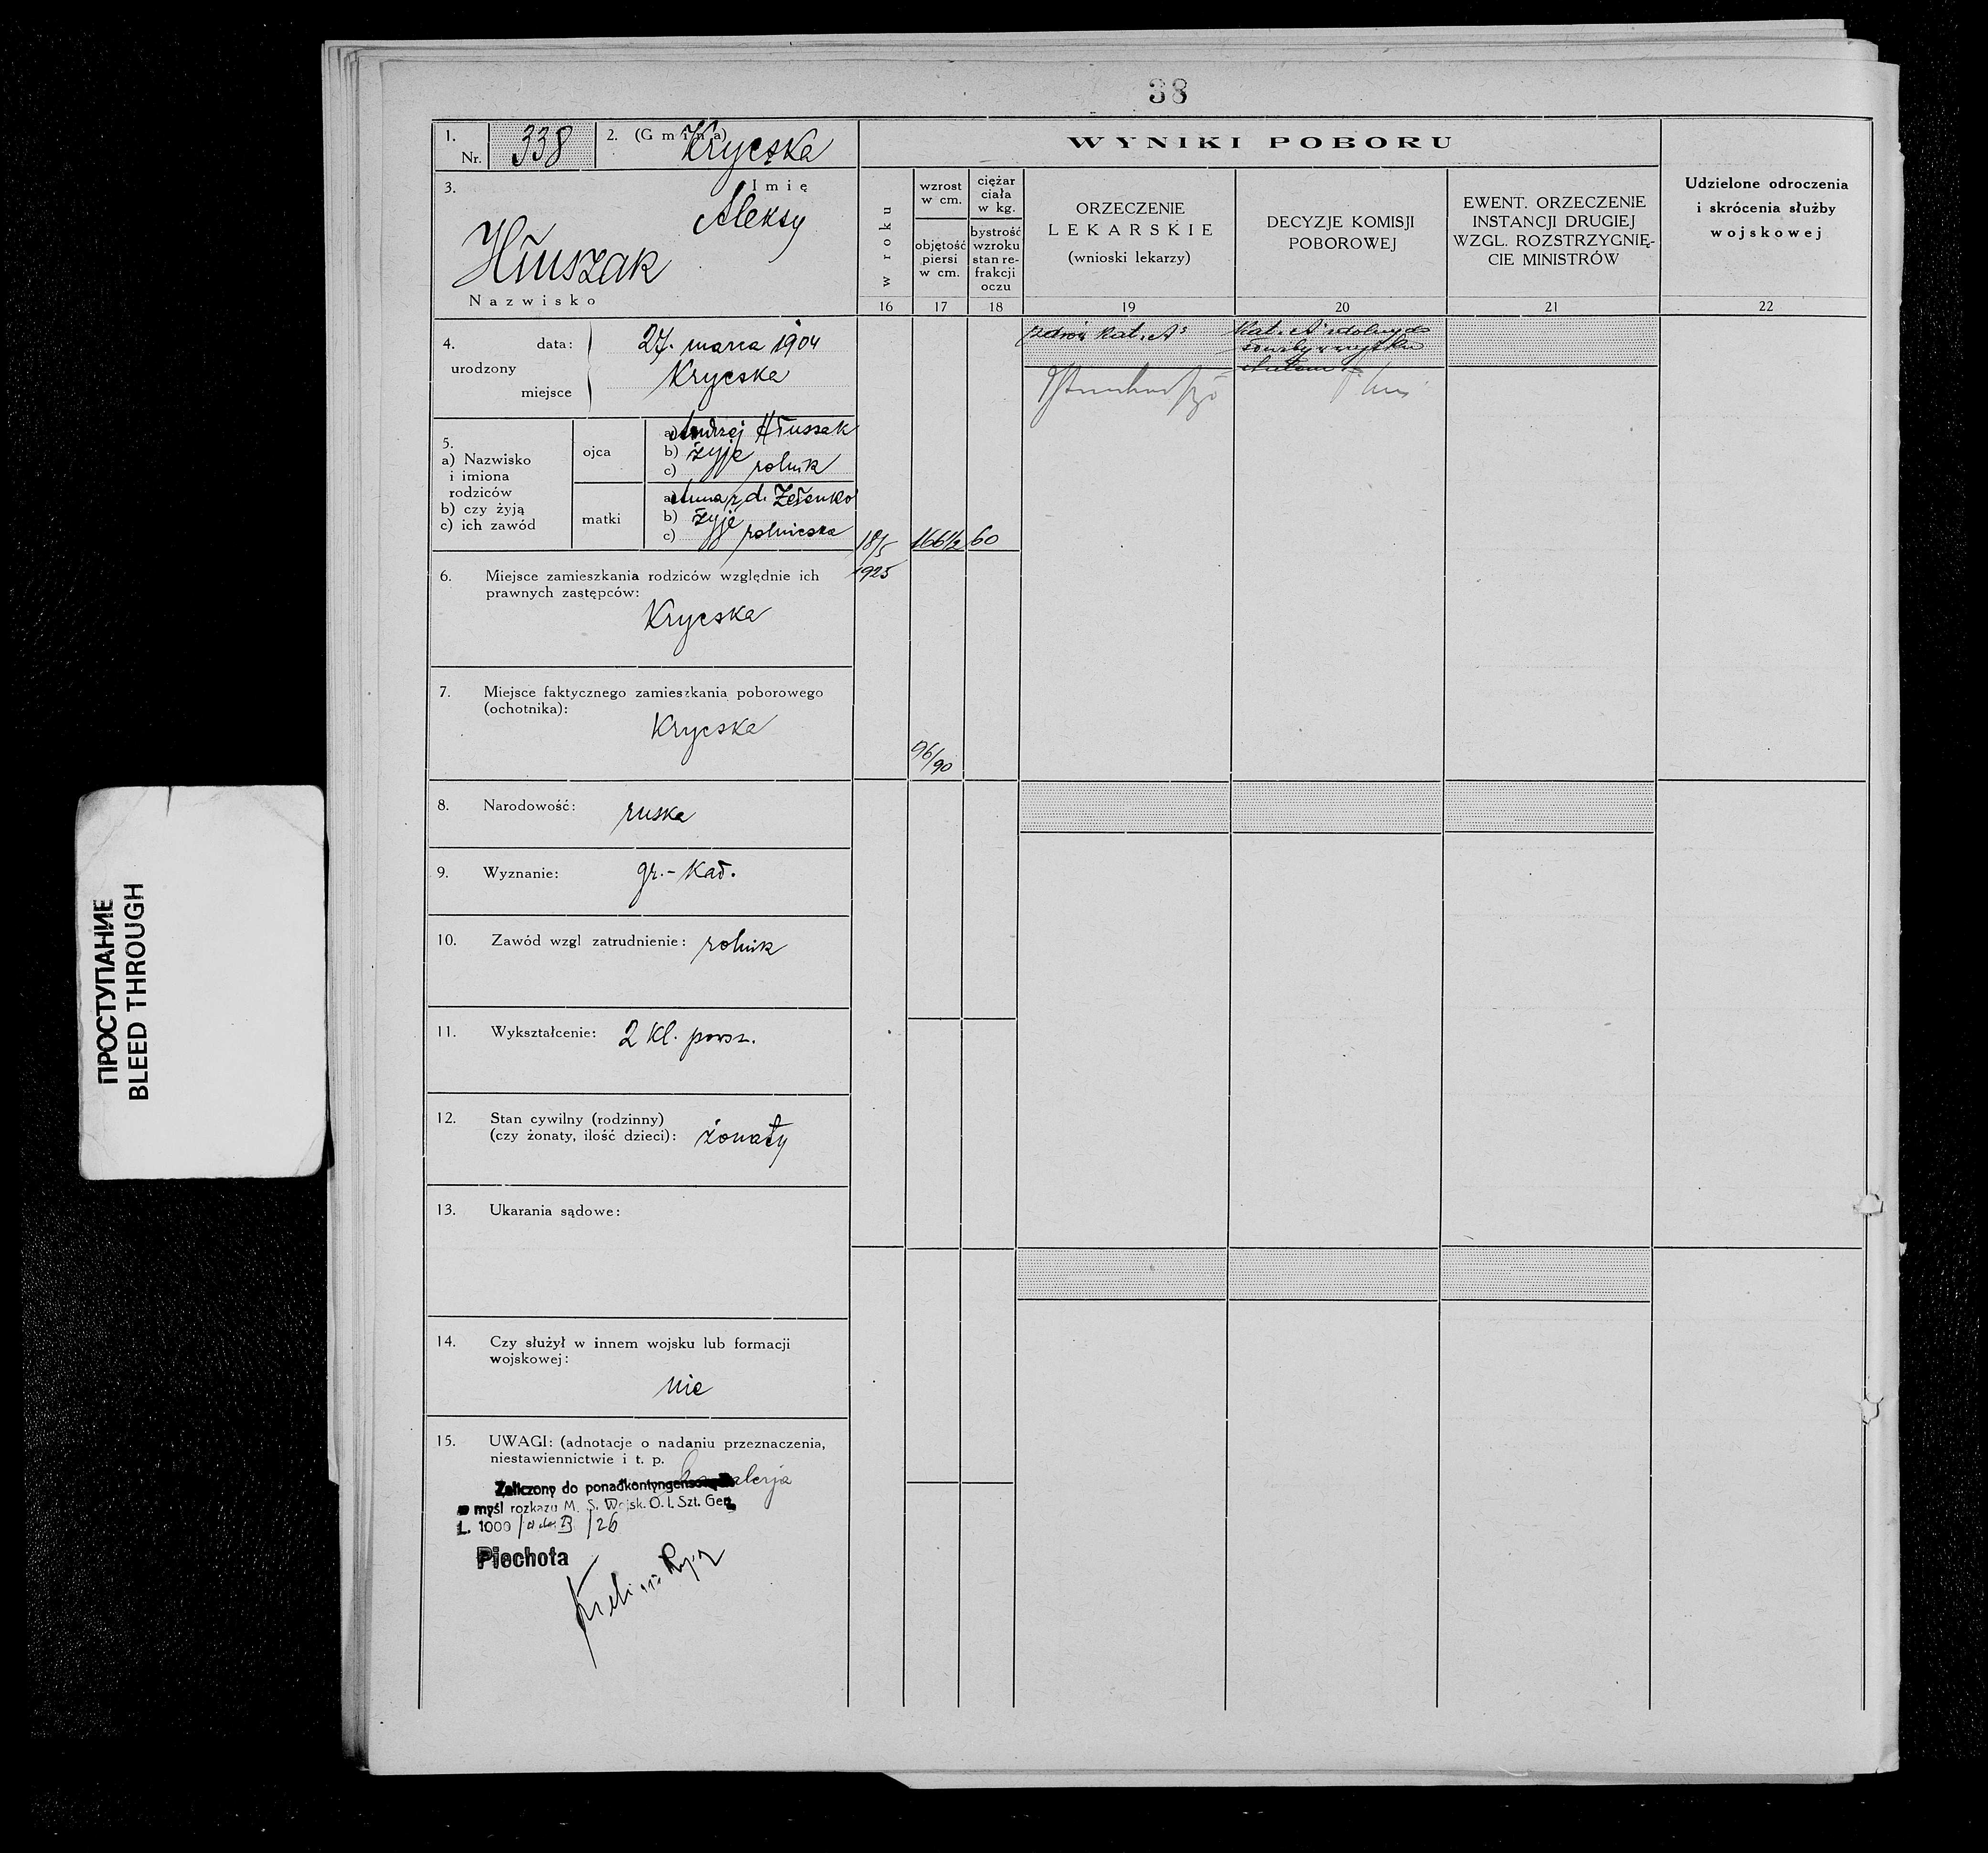 38
1. Nr. 338
2. (Gmina) Krycska
3. Imię
Aleksy
Hłuszak
Nazwisko
4. urodzony
data: 27. marca 1904
miejsce Krycska
5.
a) Nazwisko i imiona rodziców
b) czy żyją
c) ich zawód
ojca
a) Andrzej Hłuszak
b) żyje
c) rolnik
matki
a) Anna z d. Zełenko
b) żyje
c) rolniczka
6. Miejsce zamieszkania rodziców względnie ich
prawnych zastępców:
Krycska
7. Miejsce faktycznego zamieszkania poborowego
(ochotnika):
Krycska
8. Narodowość: ruska
9. Wyznanie: gr.-kat.
10. Zawód wzgl zatrudnienie: rolnik
11. Wykształcenie: 2 kl. powsz.
12. Stan cywilny (rodzinny)
(czy żonaty, ilość dzieci): żonaty
13. Ukarania sądowe:
14. Czy służył w innem wojsku lub formacji
wojskowej:
nie
15. UWAGI: (adnotacje o nadaniu przeznaczenia,
niestawiennictwie i t. p.
Zaliczony do
myśl rozkazu M. S. Wojsk. O. I. Szt. Gen.
L. 1000 /26
Piechota
WYNIKI POBORU
w roku
wzrost
w cm.
objętość
piersi
w cm.
ciężar
ciała
w kg.
bystrość
wzroku
stan re-
frakcji
oczu
ORZECZENIE
LEKARSKIE
(wnioski lekarzy)
DECYZJE KOMISJI
POBOROWEJ
EWENT. ORZECZENIE
INSTANCJI DRUGIEJ
WZGL. ROZSTRZYGNIĘ-
CIE MINISTRÓW
Udzielone odroczenia
i skrócenia służby
wojskowej
16 17 18 19 20 21 22
zdrów kat. A
Kat. A zdolny do
18/5 166 1/2 60
1925
96/90
ПРОСТУПАНИЕ
BLEED THROUGH